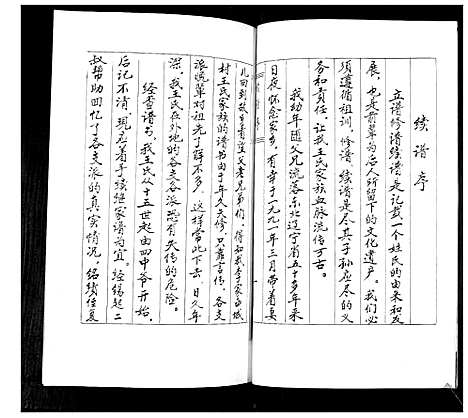 续谱序
立谱修谱续谱是记载一个姓氏的由来和发
展，也是前辈为后人所留下的文化遗产。我们必
须遵循祖训，修谱、续谱是尽其子孙应尽的义
务和责任，让我王氏家族血脉流传万古。
我幼年随父兄流落东北辽宁省五十多年来
日夜怀念家乡，有幸于一九九一年三月带着妻
儿回到故乡看望父老兄弟们，得知我李家
村王氏家族的谱书因于年久失修，只靠言传，各支
派晚辈对祖先了解不多，这样常此下去，日久年
深，我王氏在外地的各支各派恐有失传的危险。
经查谱书，我王氏从十五世起由四中爷开始，
后记不清，现应着手续继家谱为宜。经锡起二
叔帮助回忆了各支派的真实情况，绍绩侄复